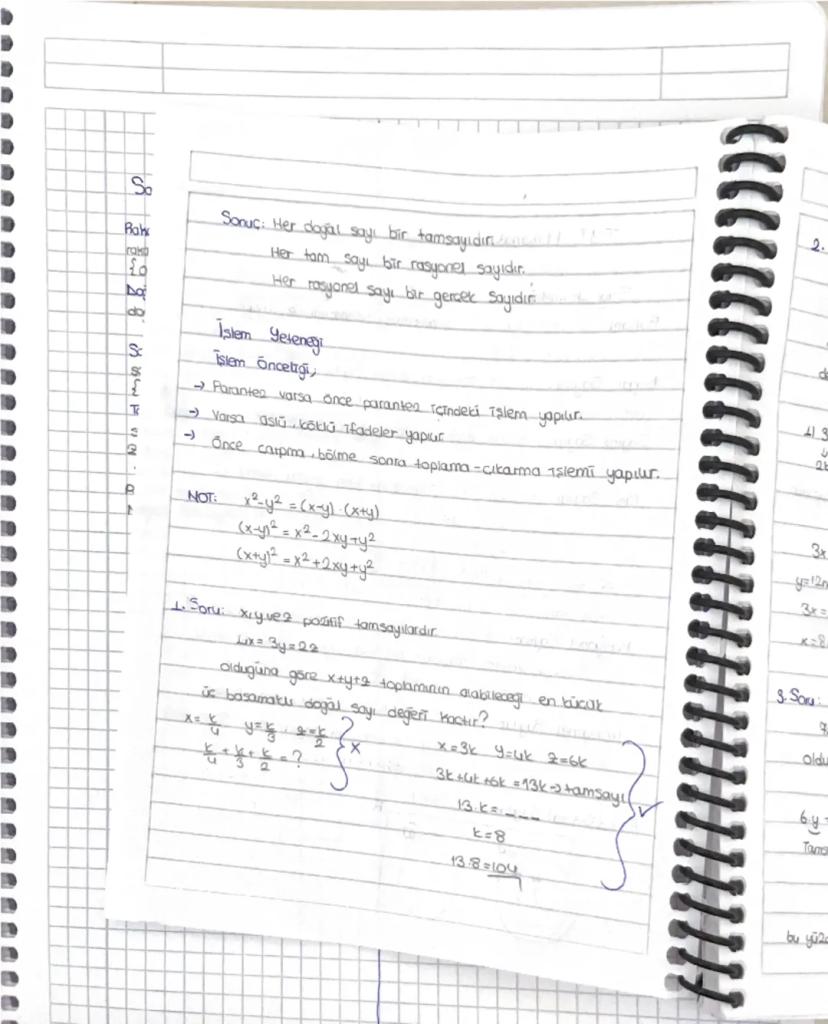 Sonuç: Her doğal sayı bir tamsayıdır.
Her tam sayı bir rasyonel sayıdır.
Her rasyonel sayı bir gerçek sayıdır.
İşlem Yeteneği
İşlem Önceliği;
→ Parantez varsa önce parantez içindeki işlem yapılır.
→ Varsa üslü, köklü ifadeler yapılır
→ Önce çarpma, bölme sonra toplama-çıkarma işlemi yapılır.
NOT: x²-y² = (x-y).(x+y)
(x-y)² = x²-2xy+y²
(x+y)² = x²+2xy+y²
1. Soru: x,y ve z pozitif tamsayılardır.
4x = 3y = 2z
olduğuna göre x+y+z toplamının alabileceği en küçük
üç basamaklı doğal sayı değeri kaçtır?
x = k/4 y = k/3 z = k/2 x
k/4 + k/3 + k/2 = ?
x = 3k y = 4k z = 6k
3k+4k+6k = 13k → tamsayı
13.k = _ _ _ ✓
k = 8
13.8 = 104
So
Rak
rak
Do
do
2.
3x
y=12
3x=
x=8
3. Soru:
oldu
6.y
Tam
bu yüz